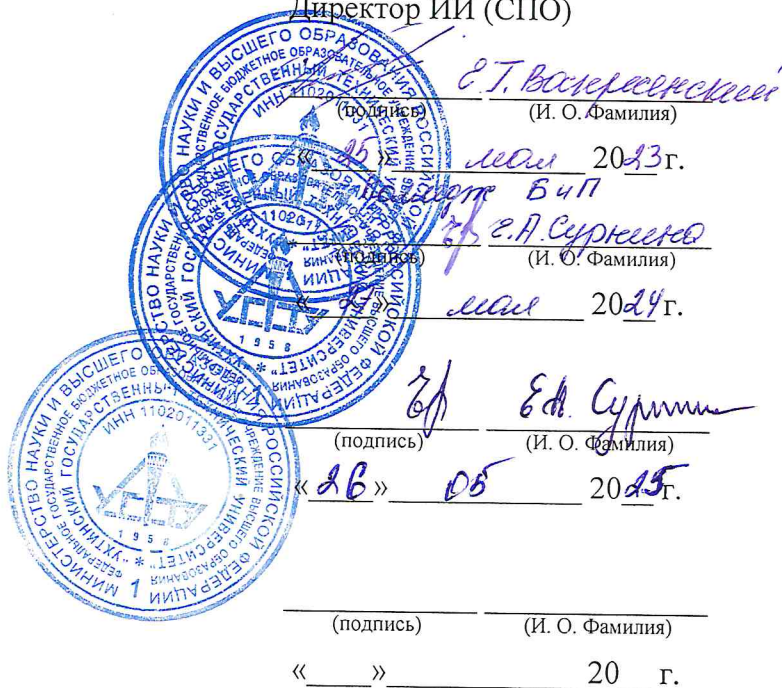 Директор ИИ (СПО)
Е.Т. Воскресенский
(подпись) (И. О. Фамилия)
«25» мая 2023 г.
колледж БиП
Е.А. Суркина
(подпись) (И. О. Фамилия)
« » мая 2024 г.
Е.А.
(подпись) (И. О. Фамилия)
«26» 05 2025 г.
(подпись) (И. О. Фамилия)
«____»____________ 20__ г.
МИНИСТЕРСТВО НАУКИ И ВЫСШЕГО ОБРАЗОВАНИЯ РОССИЙСКОЙ ФЕДЕРАЦИИ
ФЕДЕРАЛЬНОЕ ГОСУДАРСТВЕННОЕ БЮДЖЕТНОЕ ОБРАЗОВАТЕЛЬНОЕ УЧРЕЖДЕНИЕ ВЫСШЕГО ОБРАЗОВАНИЯ
"УХТИНСКИЙ ГОСУДАРСТВЕННЫЙ ТЕХНИЧЕСКИЙ УНИВЕРСИТЕТ"
ИНН 1102011331
УГТУ
1958
1